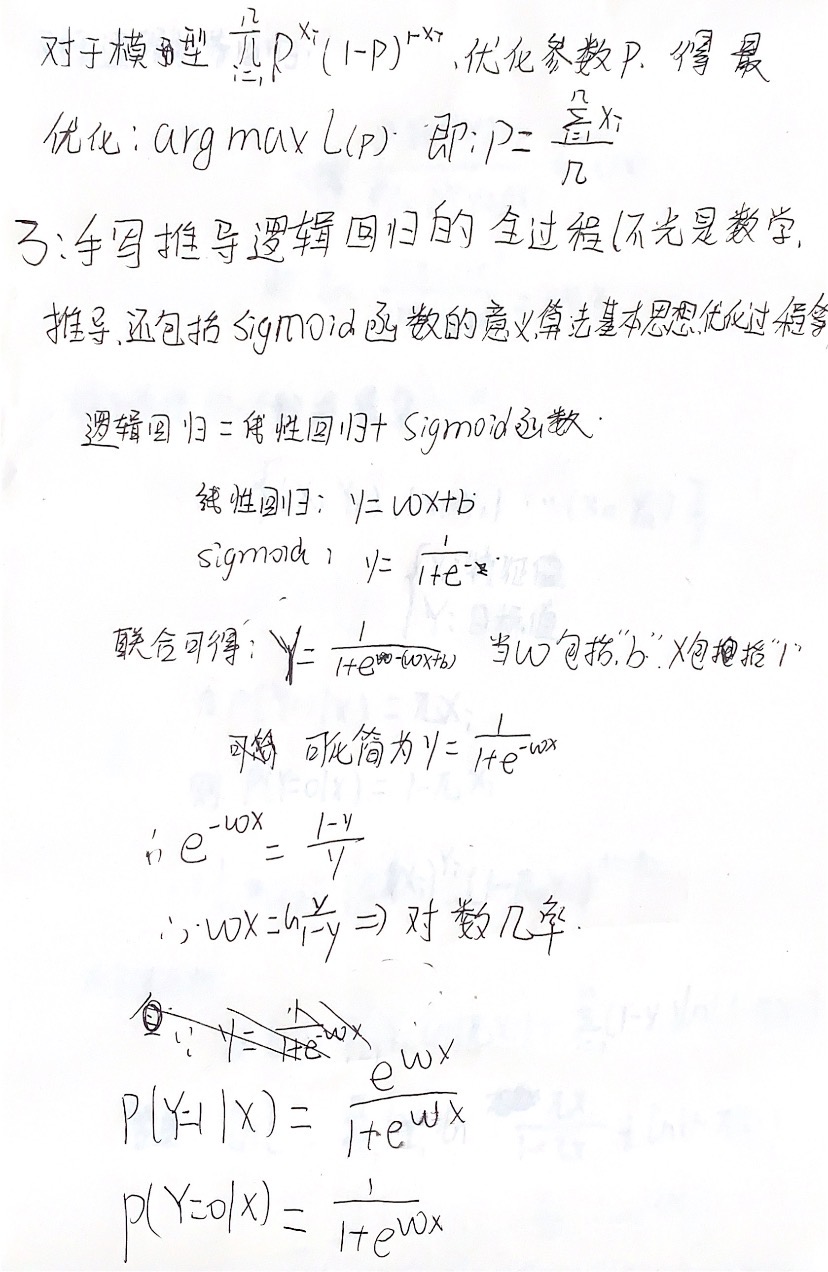 对于模型 ∏_{i=1}^{n} p^{xi} (1-p)^{1-xi}, 优化参数p. 得最
优化: arg max L(p). 即: p = \frac{\sum_{i=1}^{n} xi}{n}
3: 手写推导逻辑回归的全过程(不光是数学,
推导, 还包括sigmoid函数的意义,算法基本思想,优化过程等
逻辑回归 = 线性回归 + Sigmoid函数.
线性回归: y = wx+b
sigmoid: y = \frac{1}{1+e^{-z}}.
联合可得: Y = \frac{1}{1+e^{-(wx+b)}} 当w包括"b". X包括"1"
可化简为 y = \frac{1}{1+e^{-wx}}
∴ e^{-wx} = \frac{1-y}{y}
∴ wx = ln\frac{y}{1-y} => 对数几率.
∵ y = \frac{1}{1+e^{-wx}}
P(Y=1|X) = \frac{e^{wx}}{1+e^{wx}}
p(Y=0|X) = \frac{1}{1+e^{wx}}